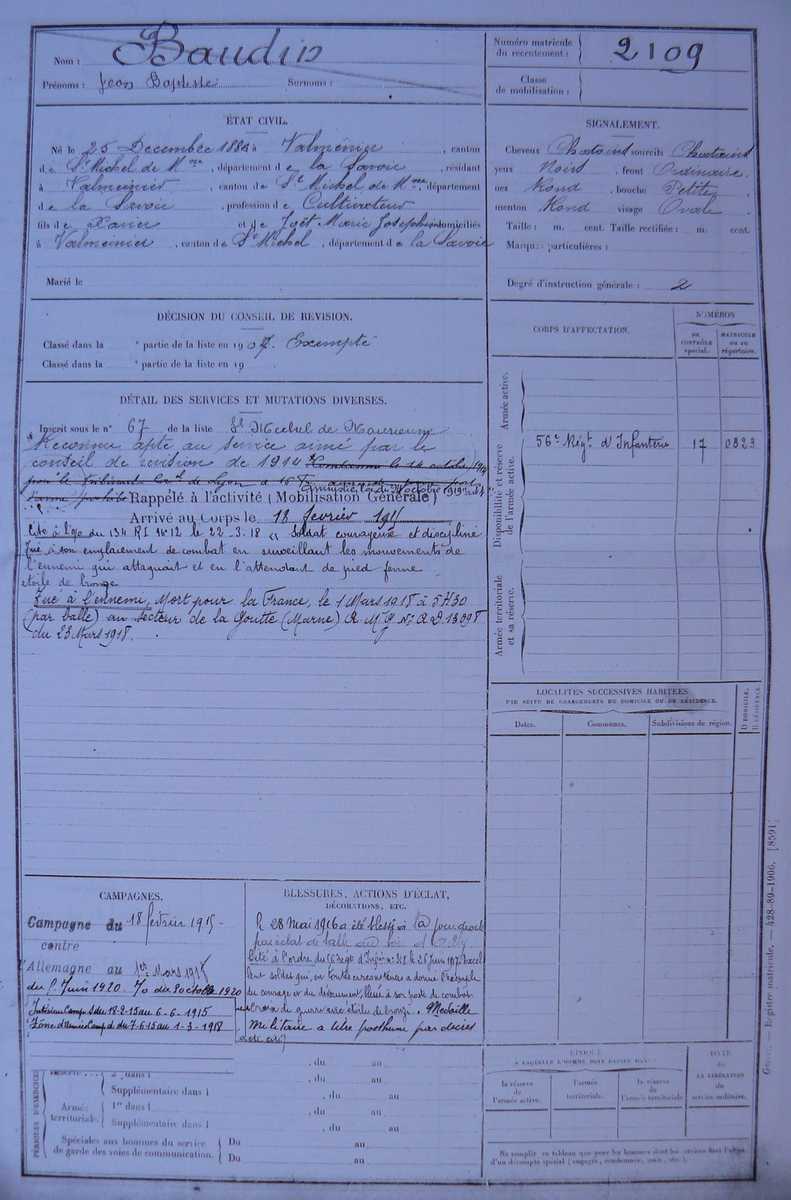 Nom : Baudin
Prénoms : Jean Baptiste Surnoms :
Numéro matricule du recrutement : 2109
Classe de mobilisation :
ÉTAT CIVIL.
Né le 25 Décembre 188 à Valmeinier, canton
de St Michel de Mne, département de la Savoie, résidant
à Valmeinier, canton de St Michel de Mne, département
de la Savoie, profession de Cultivateur
fils de Xavier et de Joët Marie Joséphine domiciliés
à Valmeinier, canton de St Michel, département de la Savoie
Marié le
SIGNALEMENT.
Cheveux Chatains sourcils Chatains
yeux Noirs, front Ordinaire
nez Rond, bouche Petite
menton Rond visage Ovale
Taille : m. cent. Taille rectifiée : m. cent.
Marques particulières :
Degré d'instruction générale : 2
DÉCISION DU CONSEIL DE REVISION.
Classé dans la e partie de la liste en 190 . Exempté
Classé dans la e partie de la liste en 19
DÉTAIL DES SERVICES ET MUTATIONS DIVERSES.
Inscrit sous le n° 67 de la liste St Michel de Maurienne
Reconnu apte au service armé par le
conseil de revision de 1914
Rappelé à l'activité (Mobilisation Générale)
Arrivé au Corps le 18 février 1915
Cité à l'o/ du 134 RI N° 12 le 22-3-18 « Soldat courageux et discipliné
Tué à son emplacement de combat en surveillant les mouvements de
l'ennemi qui attaquait et en l'attendant de pied ferme
étoile de bronze
Tué à l'ennemi, Mort pour la France, le 1 Mars 1918 à 5H30
(par balle) au secteur de la Goutte (Marne) 13098
du 23 Mars 1918.
CORPS D'AFFECTATION.
NUMÉROS
DE CONTRÔLE spécial.
MATRICULE OU AU répertoire.
Armée active.
Disponibilité et réserve de l'armée active.
56e Régt d'Infanterie 17 0323
Armée territoriale et sa réserve.
LOCALITÉS SUCCESSIVES HABITÉES
PAR SUITE DE CHANGEMENTS DE DOMICILE OU DE RÉSIDENCE.
Dates. Communes. Subdivisions de région.
D DOMICILE. R RÉSIDENCE
CAMPAGNES.
Campagne du 18 février 1915
contre
l'Allemagne au 1er Mars 191
Intérieur Camp S du 18-2-15 au 6-6-1915
Zone d'Armée Camp d du 7-6-15 au 1-3-1918
BLESSURES, ACTIONS D'ÉCLAT,
DÉCORATIONS, ETC.
28 Mai 1916 a été blessé à
par éclat de balle
Cité à l'ordre du Régt d'Infie
soldat qui, en toutes circonstances a donné l'exemple
du courage et du dévouement, blessé à son poste de combat
Croix de guerre avec étoile de bronze. Médaille
Militaire à titre posthume par décret
, du au
Supplémentaire dans l , du au
Armée territoriale. 1re dans l , du au
Supplémentaire dans l , du au
PÉRIODES D'EXERCICES
Spéciales aux hommes du service de garde des voies de communication. Du au
Du au
ÉPOQUE
A LAQUELLE L'HOMME DOIT PASSER DANS
la réserve de l'armée active.
l'armée territoriale.
la réserve de l'armée territoriale
DATE DE LA LIBÉRATION du service militaire.
Ne remplir ce tableau que pour les hommes dont les services font l'objet
d'un décompte spécial (engagés, condamnés, omis, etc.)
Registre matricule. — 428-89-1906. [8591]